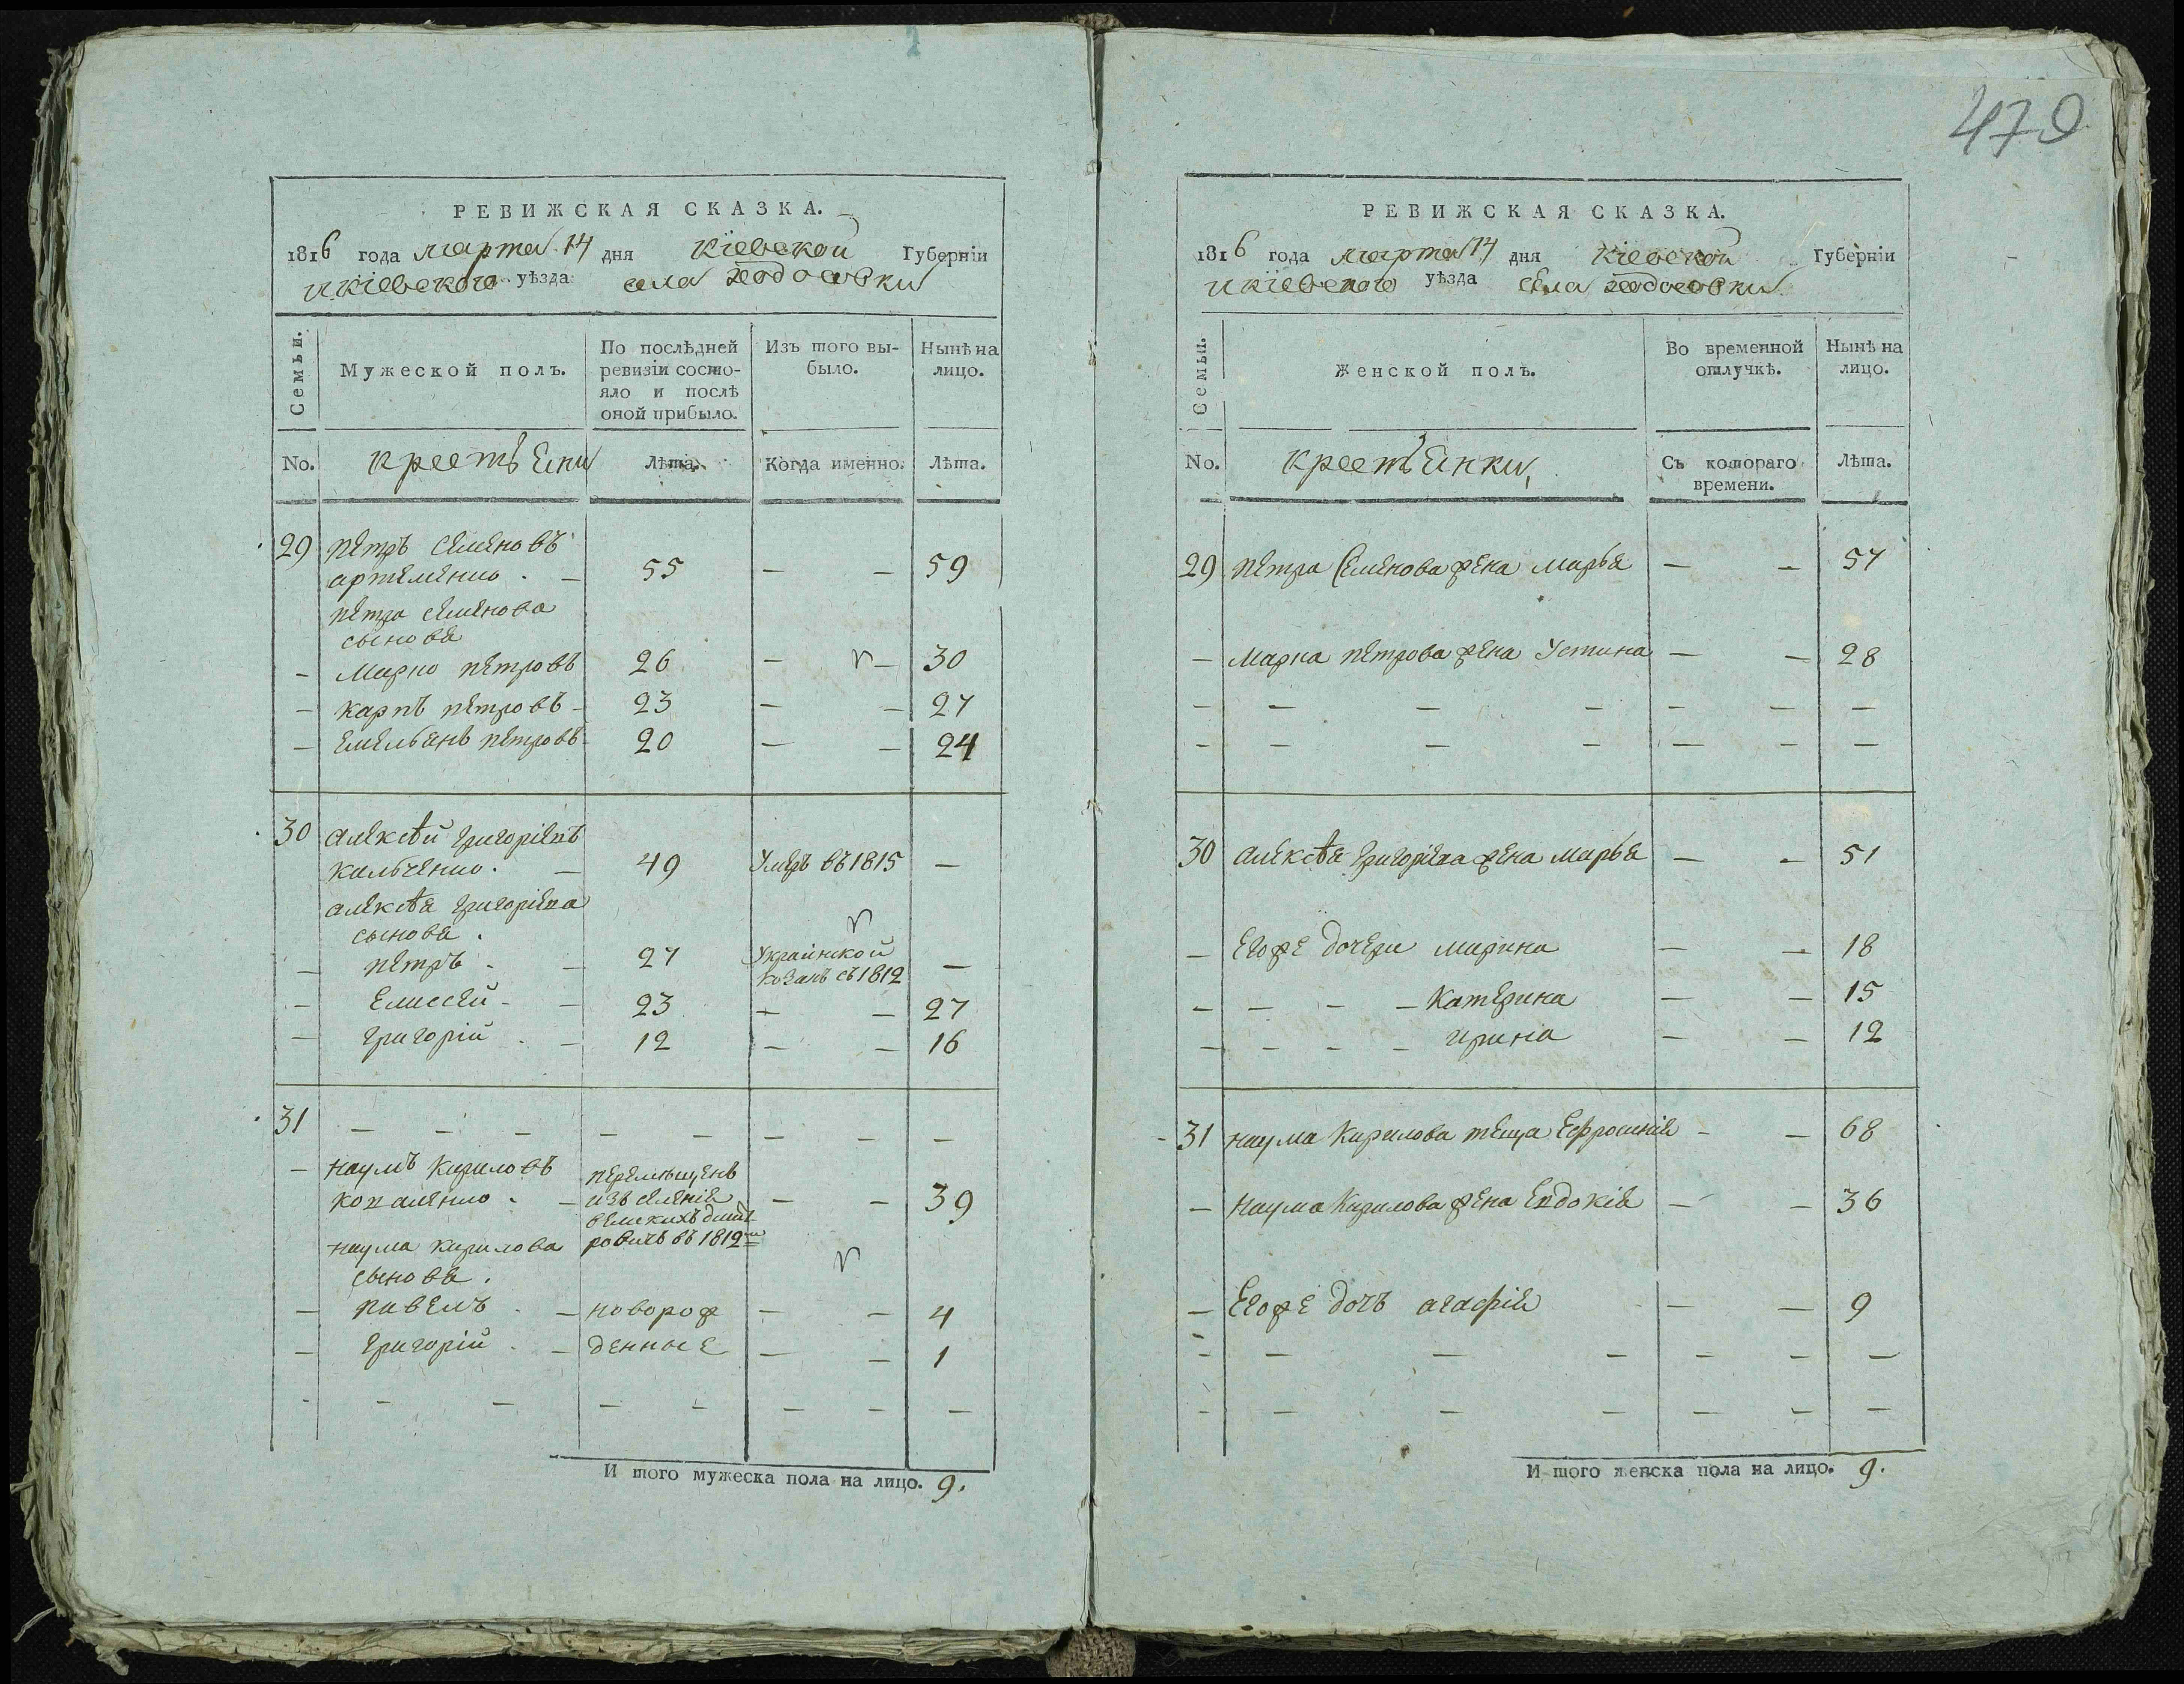 479
РЕВИЖСКАЯ СКАЗКА.
1816 года марта 14 дня Кіевской Губерніи
Икіевского уѣзда села Ѳеодосовки
Семьи.
Мужеской полъ.
По послѣдней ревизіи состояло и послѣ оной прибыло.
Изъ того выбыло.
Нынѣ на лицо.
No. крестьяни Лѣта. Когда именно. Лѣта.
29 Петръ Семеновъ
Артеменко. — 55 — — 59
Петра Семенова
сыновья
— Марко Петровъ 26 — — 30
— Карпъ Петровъ — 23 — — 27
— Емельянъ Петровъ — 20 — — 24
30 Алексѣй Григоріевъ
Кальченко. — 49 Умеръ въ 1815 —
Алексѣя Григоріева
сыновья.
— Петръ. — 27 Украинской козакъ съ 1812 —
— Елиссей — — 23 — — 27
— Григорій. — 12 — — 16
31 — — — — — — — —
— Наумъ Кириловъ
Коваленко. — перемѣщенъ из селенія великихъ дмитровичъ въ 1812м — — 39
Наума Кирилова
сыновья.
— Павелъ. — новорож — — 4
— Григорій. — денные — — 1
- — — — — — — —
И того мужеска пола на лицо. 9.
РЕВИЖСКАЯ СКАЗКА.
1816 года марта 14 дня Кіевской Губерніи
Икіевского уѣзда села Ѳеодосовки
Семьи.
Женской полъ.
Во временной отлучкѣ.
Нынѣ на лицо.
No. крестьянки, Съ котораго времени. Лѣта.
29 Петра Семенова жена Марья — — 57
— Марка Петрова жена Устина — — 28
— — — — — — —
— — — — — — —
30 Алексѣя Григоріева жена Марья — — 51
— Егоже дочери Марина — — 18
— — — — Катерина — — 15
— — — — Ирина — — 12
31 Наума Кирилова теща Ефросинія — — 68
— Наума Кирилова жена Евдокія — — 36
— Егоже дочь Агафія — — 9
— — — — — — —
— — — — — — —
И того женска пола на лицо. 9.